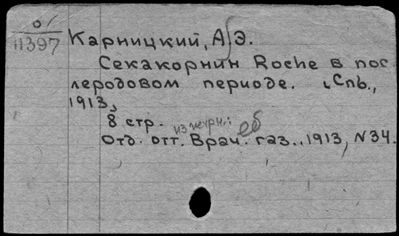 о
11397
Карницкий, А. Э.
Секакорнин Roche в пос-
леродовом периоде. Спб.,
1913,
8 стр.
Отд. отт. Врач. газ., 1913, N34.